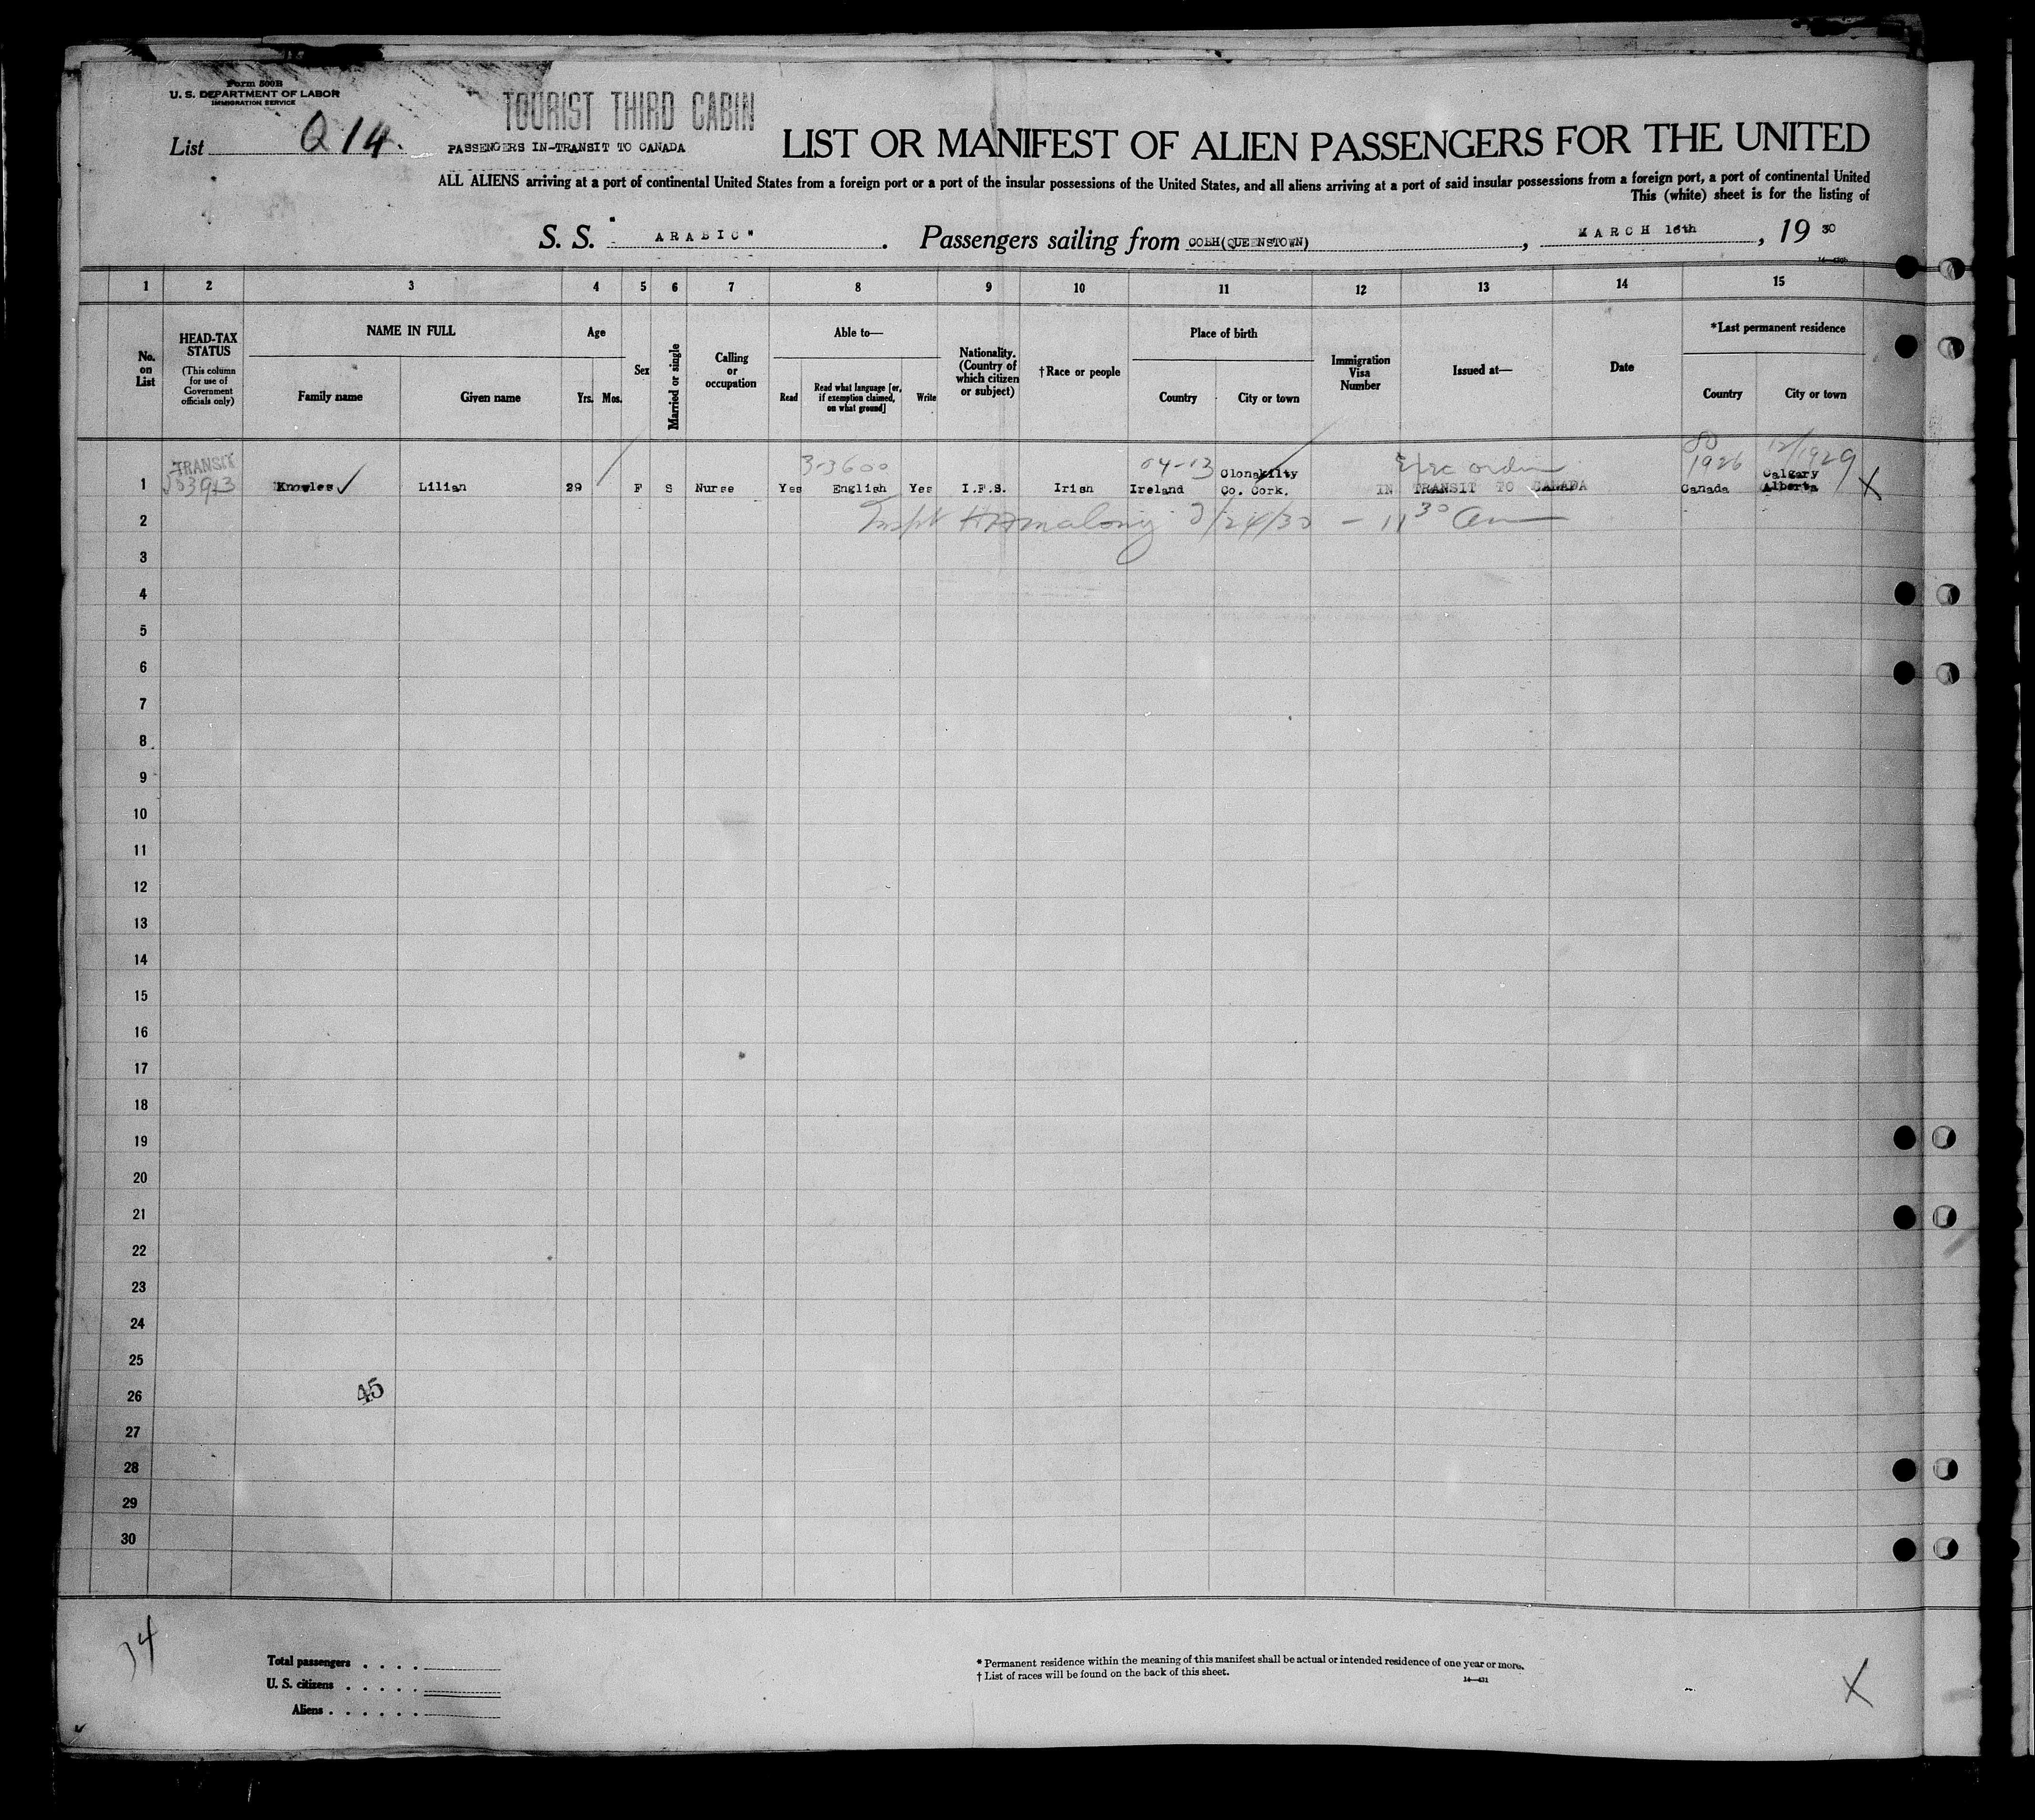 Form 500B
U. S. DEPARTMENT OF LABOR
IMMIGRATION SERVICE
List Q 14.
TOURIST THIRD CABIN
PASSENGERS IN-TRANSIT TO CANADA
LIST OR MANIFEST OF ALIEN PASSENGERS FOR THE UNITED
ALL ALIENS arriving at a port of continental United States from a foreign port or a port of the insular possessions of the United States, and all aliens arriving at a port of said insular possessions from a foreign port, a port of continental United
This (white) sheet is for the listing of
S. S. "ARABIC". Passengers sailing from COBH(QUEENSTOWN), MARCH 16th, 19 30
1 2 3 4 5 6 7 8 9 10 11 12 13 14 15
No. on List
HEAD-TAX STATUS
(This column for use of Government officials only)
NAME IN FULL
Family name
Given name
Age
Yrs. Mos.
Sex
Married or single
Calling or occupation
Able to—
Read
Read what language [or, if exemption claimed, on what ground]
Write
Nationality. (Country of which citizen or subject)
†Race or people
Place of birth
Country
City or town
Immigration Visa Number
Issued at—
Date
*Last permanent residence
Country
City or town
TRANSIT 3-3600 04-13 1926 12/1929
1 Knowles Lilian 29 F S Nurse Yes English Yes I.F.S. Irish Ireland Clonakilty Co. Cork. IN TRANSIT TO CANADA Canada Calgary Alberta X
2 3/24/30 - 11 30 am
3
4
5
6
7
8
9
10
11
12
13
14
15
16
17
18
19
20
21
22
23
24
25
26 45
27
28
29
30
Total passengers . . . .
U. S. citizens . . . . .
Aliens . . . . . .
* Permanent residence within the meaning of this manifest shall be actual or intended residence of one year or more.
† List of races will be found on the back of this sheet.
14—431
X